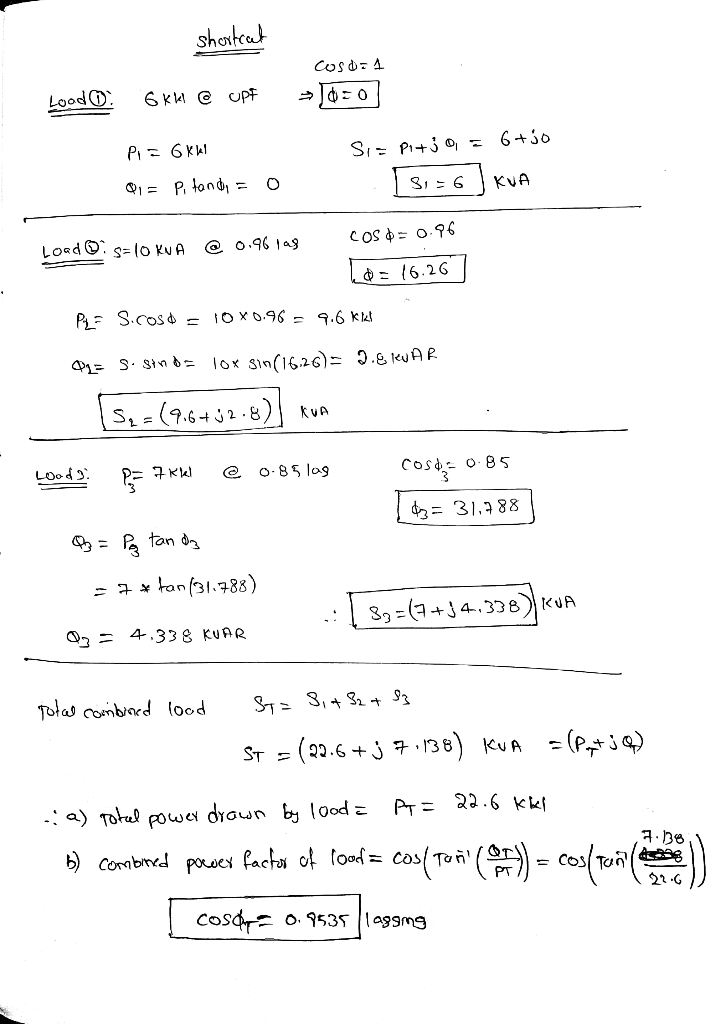 shortcut
cosϕ = 1
Load ①: 6 KW @ UPF ⇒ ϕ = 0
P₁ = 6 KW S₁ = P₁ + jQ₁ = 6 + j0
Q₁ = P₁ tanϕ₁ = 0 S₁ = 6 KVA
Load ②: S = 10 KVA @ 0.96 lag cosϕ = 0.96
ϕ = 16.26
P₂ = S.cosϕ = 10 × 0.96 = 9.6 KW
Q₂ = S. sinϕ = 10 × sin(16.26) = 2.8 KVAR
S₂ = (9.6 + j2.8) KVA
Load 3: P₃ = 7 KW @ 0.85 lag cosϕ₃ = 0.85
ϕ₃ = 31.788
Q₃ = P₃ tanϕ₃
= 7 * tan(31.788)
∴ S₃ = (7 + j4.338) KVA
Q₃ = 4.338 KVAR
Total combined load S_T = S₁ + S₂ + S₃
S_T = (22.6 + j 7.138) KVA = (P_T + jQ_T)
∴ a) Total power drawn by load = P_T = 22.6 KW
b) combined power factor of load = cos(Tan⁻¹(Q_T/P_T)) = cos(Tan⁻¹(7.138/22.6))
cosϕ_T = 0.9535 lagging